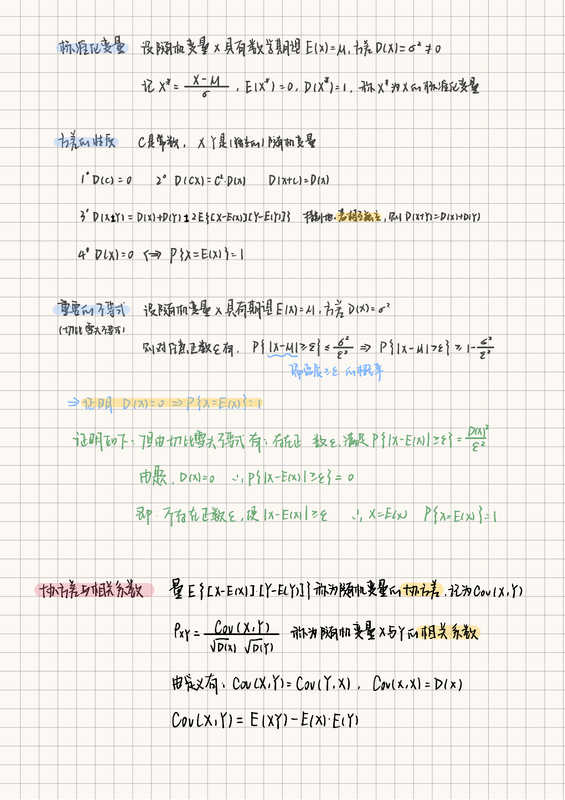 标准化变量 设随机变量X具有数学期望E(X)=μ,方差D(X)=σ²≠0
记X*=(X-μ)/σ,E(X*)=0,D(X*)=1,称X*为X的标准化变量
方差的性质 C是常数,X Y是(独立的)随机变量
1° D(C)=0 2° D(CX)=C²·D(X) D(X+C)=D(X)
3° D(X±Y)=D(X)+D(Y)±2E{[X-E(X)][Y-E(Y)]} 特别地,若相互独立,则 D(X+Y)=D(X)+D(Y)
4° D(X)=0 <=> P{X=E(X)}=1
重要的不等式 设随机变量X具有期望E(X)=μ,方差D(X)=σ²
(切比雪夫不等式)
则对任意正数ε有,P{|X-μ|≥ε}≤σ²/ε² ⇒ P{|X-μ|≥ε}≥1-σ²/ε²
偏离≥ε的概率
⇒证明 D(X)=0 ⇒ P{X=E(X)}=1
证明如下:由切比雪夫不等式有:存在正数ε,满足P{|X-E(X)|≥ε}=D(X)²/ε²
由题,D(X)=0 ∴P{|X-E(X)|≥ε}=0
即 不存在正数ε,使|X-E(X)|≥ε ∴X=E(X) P{X=E(X)}=1
协方差与相关系数 量E{[X-E(X)][Y-E(Y)]}称为随机变量的协方差,记为Cov(X,Y)
ρXY=Cov(X,Y)/(√D(X) √D(Y)) 称为随机变量X与Y的相关系数
由定义有:Cov(X,Y)=Cov(Y,X),Cov(X,X)=D(X)
Cov(X,Y)=E(XY)-E(X)·E(Y)